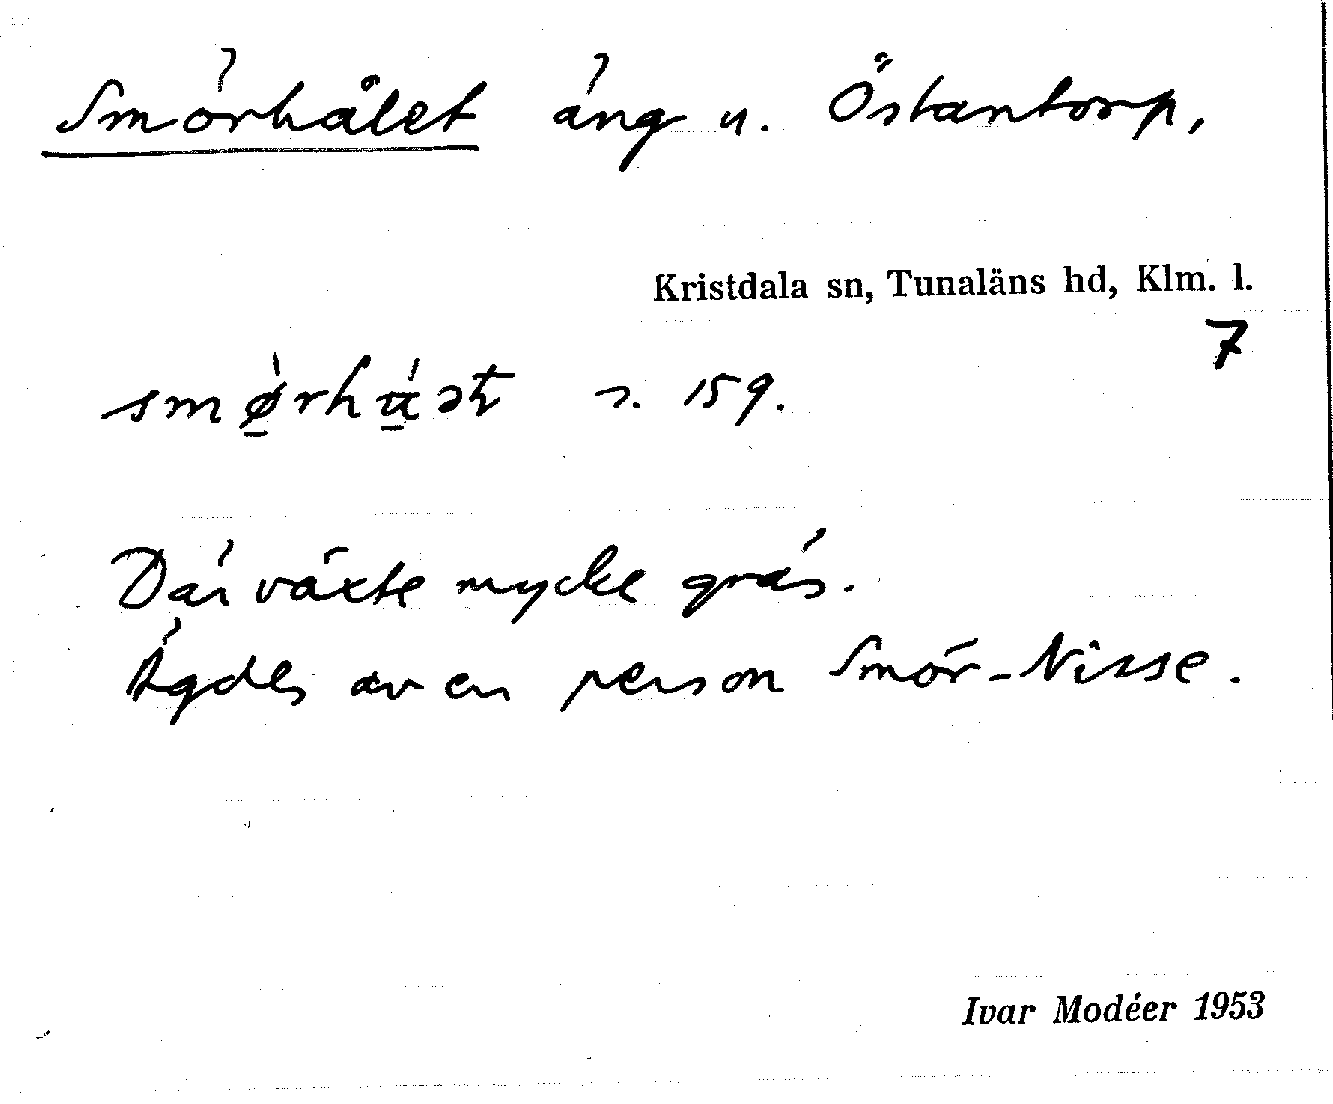 Smörhålet äng u. Östantorp,
Kristdala sn, Tunaläns hd, Klm. l.
7
s. 159.
Där växte mycke gräs.
Ägdes av en person Smör-Nisse.
Ivar Modéer 1953